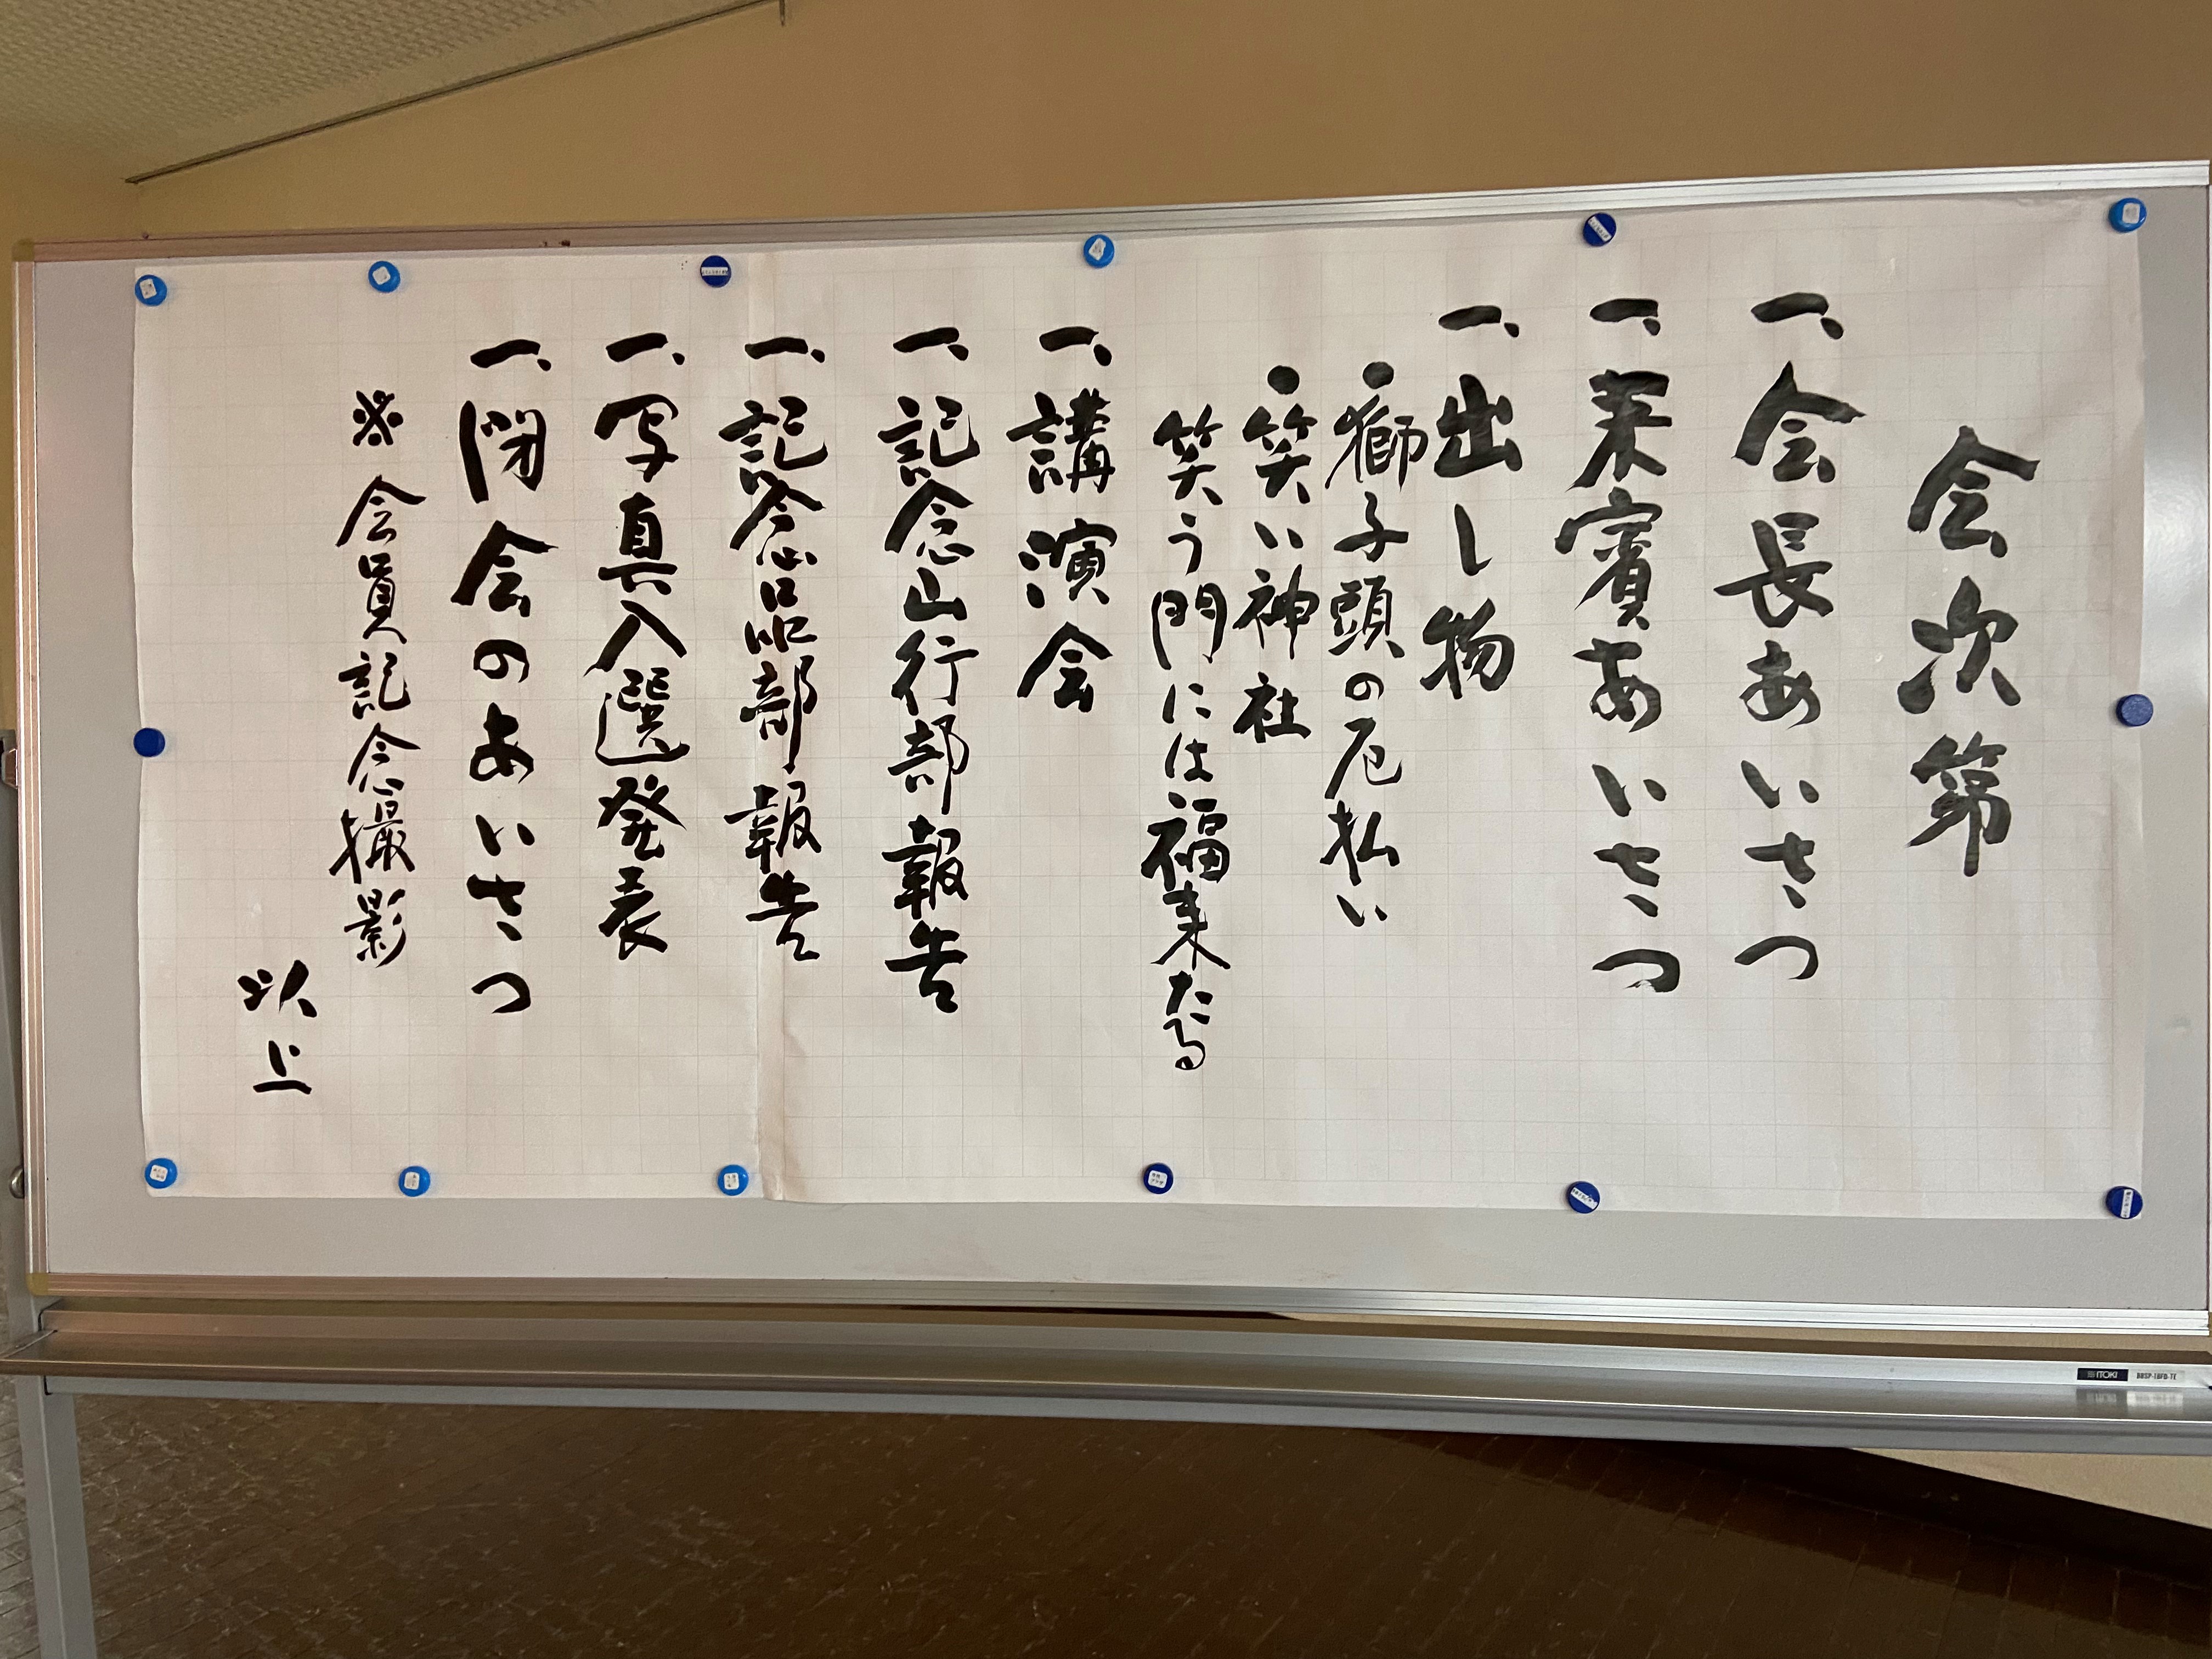 会次第
一、会長あいさつ
一、来賓あいさつ
一、出し物
●獅子頭の厄払い
●笑い神社
笑う門には福来たる
一、講演会
一、記念山行部報告
一、記念品部報告
一、写真入選発表
一、閉会のあいさつ
※会員記念撮影
以上
ITOKI